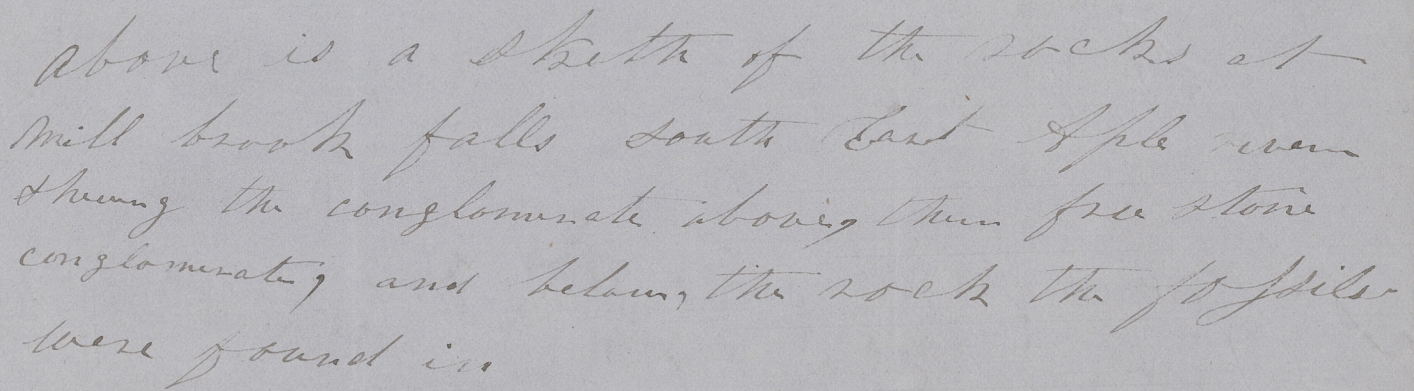 above is a sketh of the rocks at
Mill brook falls south East Aple river
shewing the conglomerate above, then free stone
conglomerate, and below, the rock the fossils
were found in